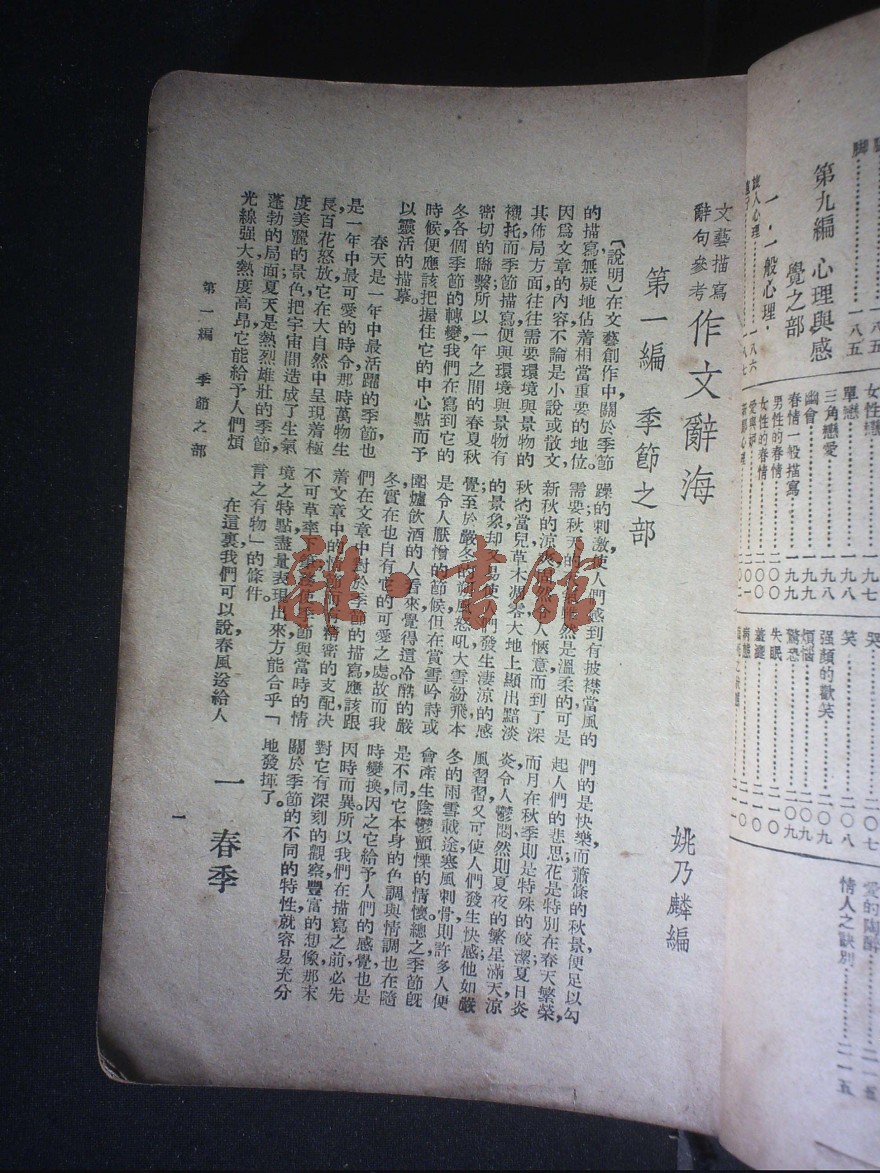 腳……一八五
第九編 心理與感
覺之部……一八五
一・一般心理・一八六
女性戀……一九七
單戀……一九八
三角戀愛……一九八
幽會……一九九
春情一般描寫……一九九
男性的春情……二〇〇
女性的春情……二〇〇
哭……二〇七
笑……二〇八
强顏的歡笑……二〇九
煩惱……二〇九
驚恐……二一〇
失眠……二一〇
羞澀……二一〇
病態……二一一
愛的陶醉……二一五
情人之訣別……二一五
文藝描寫
辭句參考
作文辭海
姚乃麟編
第一編 季節之部
〔說明〕在文藝創作中,關於季節
的描寫,無疑地佔着相當重要的地位。
因爲文章的內容,不論是小說或散文,
其佈局方面,往往需要環境與景物的
襯托,而季節描寫便與環境與景物有
密切的聯繫,所以一年之間的春夏秋
冬各個季節的轉變,我們在寫到它的
時候,便應該把握住它的中心點而予
以靈活的描摹。
春天是一年中最活躍的季節,也
是一年中最可愛的時令,那時萬物生
長,百花怒放,它在大自然中呈現着極
度美麗的景色,把宇宙間造成了生氣
蓬勃的局面;夏天是熱烈雄壯的季節,
光線强大,熱度高昂,它能給予人們煩
躁的刺激,使人們感到有披襟當風的
需要;秋天的 雖然是溫柔的,可是
新秋的涼爽固然令人愜意,而到了深
秋的當兒,草木凋零,大地上顯出黯淡
的景象,却又易使人們發生淒涼的感
覺;至於嚴冬的朔風怒吼,大雪紛飛,本
是令人厭憎的節候,但在賞雪吟詩或
圍爐飲酒的人看來,覺得這冷酷的嚴
冬,實在也自有它的可愛之處。故而我
們在文章中對於季節的描寫,應該跟
着文章中的情節而予精密的支配,決
不可草率下筆,要使季節與當時的情
境之特點,盡量表現出來,方能合乎「
言之有物」的條件。
在這裏,我們可以說春風送給人
們的是快樂,而蕭條的秋景便足以勾
起人們的悲思;花是特別在春天繁榮,
而月在秋季則是特殊的皎潔;夏日炎
炎,令人鬱悶,然則夏夜的繁星滿天,涼
風習習,又可使人們發生快感;他如嚴
冬的雨雪載途,寒風刺骨,則許多人便
會產生陰鬱顫慄的情懷。總之,季節旣
是不同,它本身的色調與情調也在隨
時變換,因之它給予人們的感覺也是
因時而異,所以我們在描寫之前,必先
對它有深刻的觀察,豐富的想像,那末
關於季節的不同的特性,就容易充分
地發揮了。
一 春季
第一編 季節之部
一